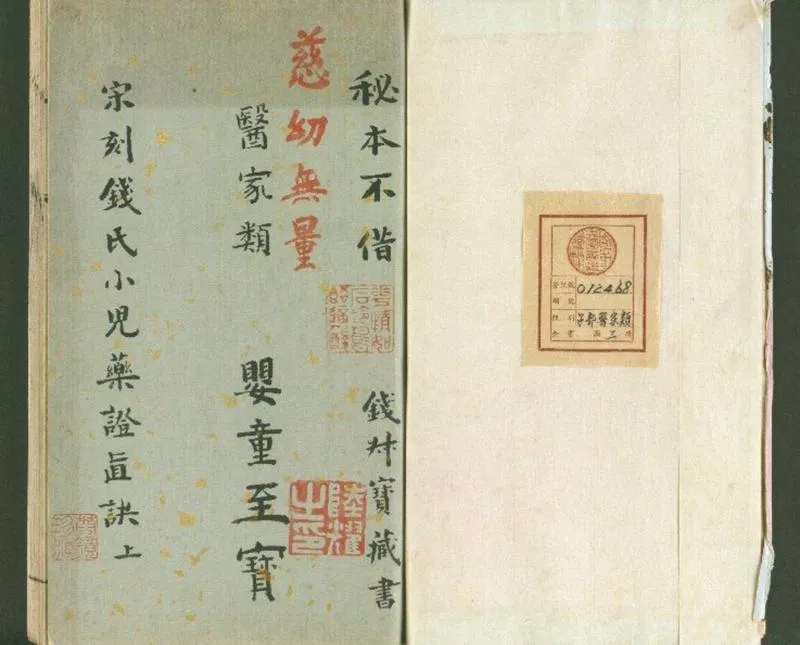 012468
子部醫家類
三
秘本不借
錢
寶藏書
慈幼無量
陸耀之印
醫家類
嬰童至寶
宋刻錢氏小兒藥證直訣上